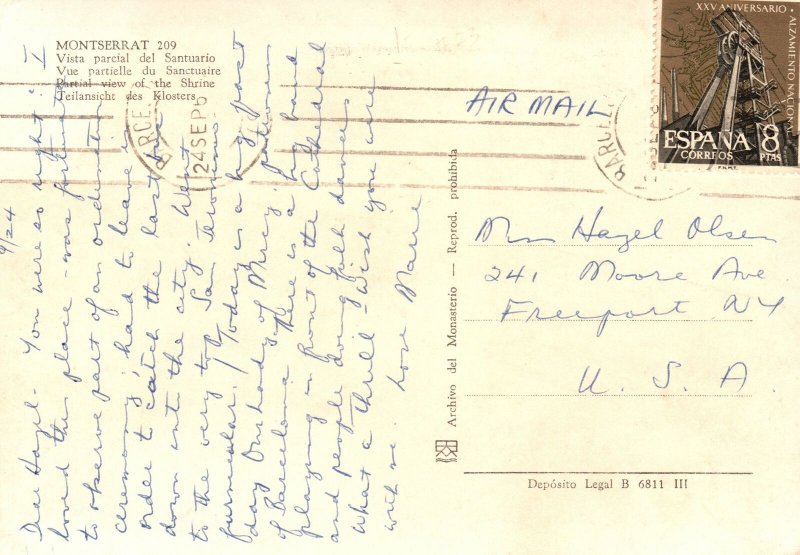 MONTSERRAT 209
Vista parcial del Santuario
Vue partielle du Sanctuaire
Partial view of the Shrine
Teilansicht des Klosters
9/24
Dear Hazel - You were so right! I
loved this place - was fortunate
to observe part of an ordination
ceremony; had to leave in
order to catch the last bus
down into the city. Went
to the very top San Jeronimo
funicular. / Today is a big feast
day Our Lady of Mercy, patron
of Barcelona. There is a big band
playing in front of the Cathedral
and people doing folk dances
What a thrill - Wish you were
with me. Love Marie
AIR MAIL
24 SEP 6
XXV ANIVERSARIO - ALZAMIENTO NACIONAL
ESPAÑA 8
CORREOS PTAS
F.N.M.T.
Miss Hazel Olsen
241 Moore Ave
Freeport NY
U. S. A.
Archivo del Monasterio — Reprod. prohibida
Depósito Legal B 6811 III